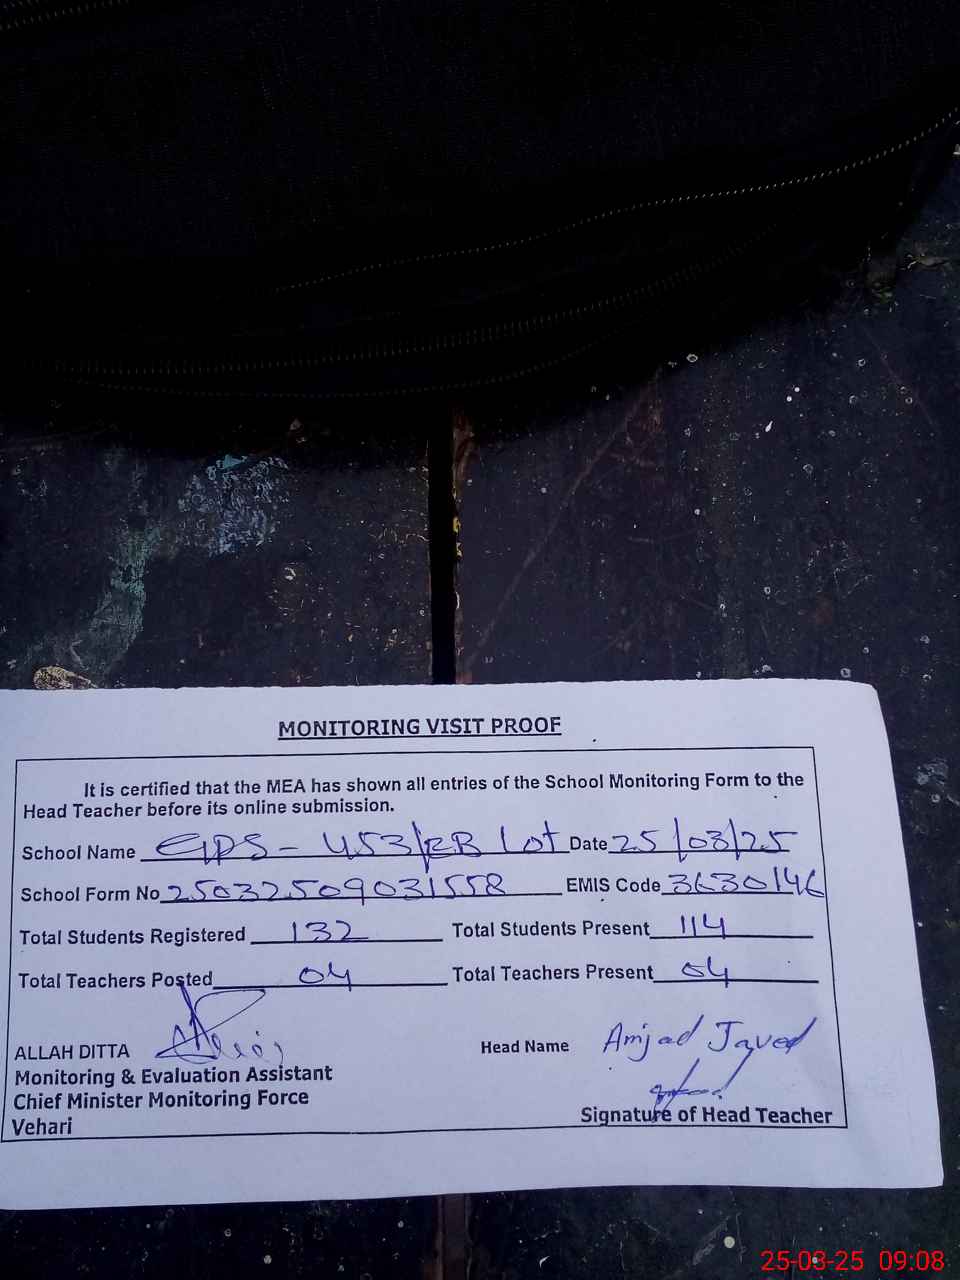 MONITORING VISIT PROOF
It is certified that the MEA has shown all entries of the School Monitoring Form to the
Head Teacher before its online submission.
School Name GPS - 453/EB Lot Date 25/03/25
School Form No 25032509031558 EMIS Code 3630146
Total Students Registered 132 Total Students Present 114
Total Teachers Posted 04 Total Teachers Present 04
ALLAH DITTA Head Name Amjad Javed
Monitoring & Evaluation Assistant
Chief Minister Monitoring Force
Vehari Signature of Head Teacher
25-03-25 09:08